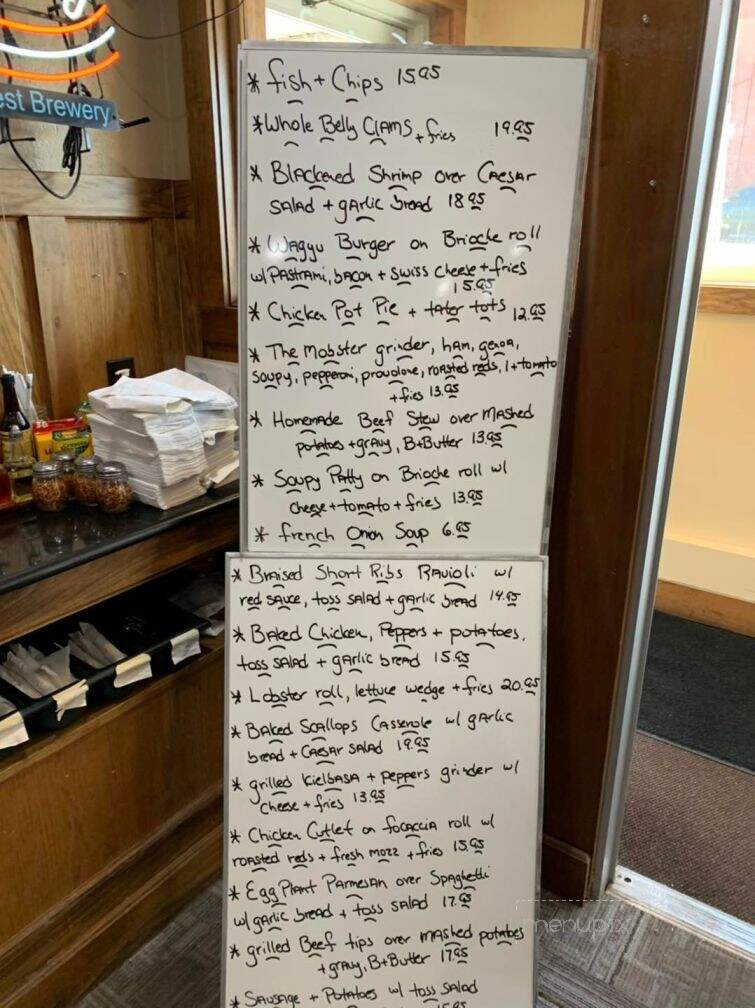 est Brewery
* fish + Chips 15.95
* Whole Belly Clams + fries 19.95
* Blackened Shrimp over Caesar
salad + garlic bread 18.95
* Waggu Burger on Brioche roll
w/ Pastrami, bacon + swiss cheese + fries
15.95
* Chicken Pot Pie + tater tots 12.95
* The Mobster grinder, ham, genoa,
soupy, pepperoni, provolone, roasted reds, l + tomato
+ fries 13.95
* Homemade Beef Stew over Mashed
potatoes + gravy, B+Butter 13.95
* Soupy Patty on Brioche roll w/
cheese + tomato + fries 13.95
* french Onion Soup 6.95
* Braised Short Ribs Ravioli w/
red sauce, toss salad + garlic bread 14.95
* Baked Chicken, Peppers + potatoes,
toss salad + garlic bread 15.95
* Lobster roll, lettuce wedge + fries 20.95
* Baked Scallops Casserole w/ garlic
bread + Caesar salad 19.95
* grilled Kielbasa + peppers grinder w/
cheese + fries 13.95
* Chicken Cutlet on focaccia roll w/
roasted reds + fresh mozz + fries 15.95
* Egg Plant Parmesan over Spaghetti
w/ garlic bread + toss salad 17.95
* grilled Beef tips over mashed potatoes
+ gravy, B+Butter 17.95
* Sausage + Potatoes w/ toss salad
15.95
menupix